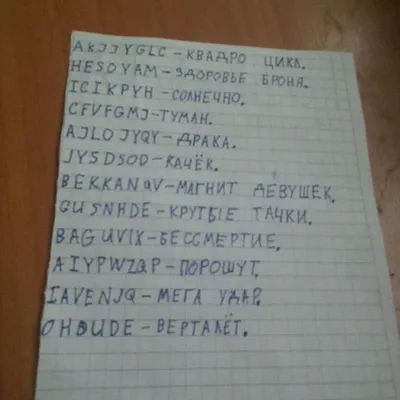 AKJJYGLC – КВАДРО ЦИКЛ.
HESOYAM – ЗДОРОВЬЕ БРОНЯ.
ICIKPYH – СОЛНЕЧНО.
CFVFGMJ – ТУМАН.
AJLOJYQY – ДРАКА.
JYSDSOD – КАЧЁК.
BEKKANQV – МАГНИТ ДЕВУШЕК.
GUSNHDE – КРУТЫЕ ТАЧКИ.
BAGUVIX – БЕССМЕРТИЕ.
AIYPWZQP – ПОРОШУТ.
IAVENJQ – МЕГА УДАР.
OHDUDE – ВЕРТАЛЁТ.